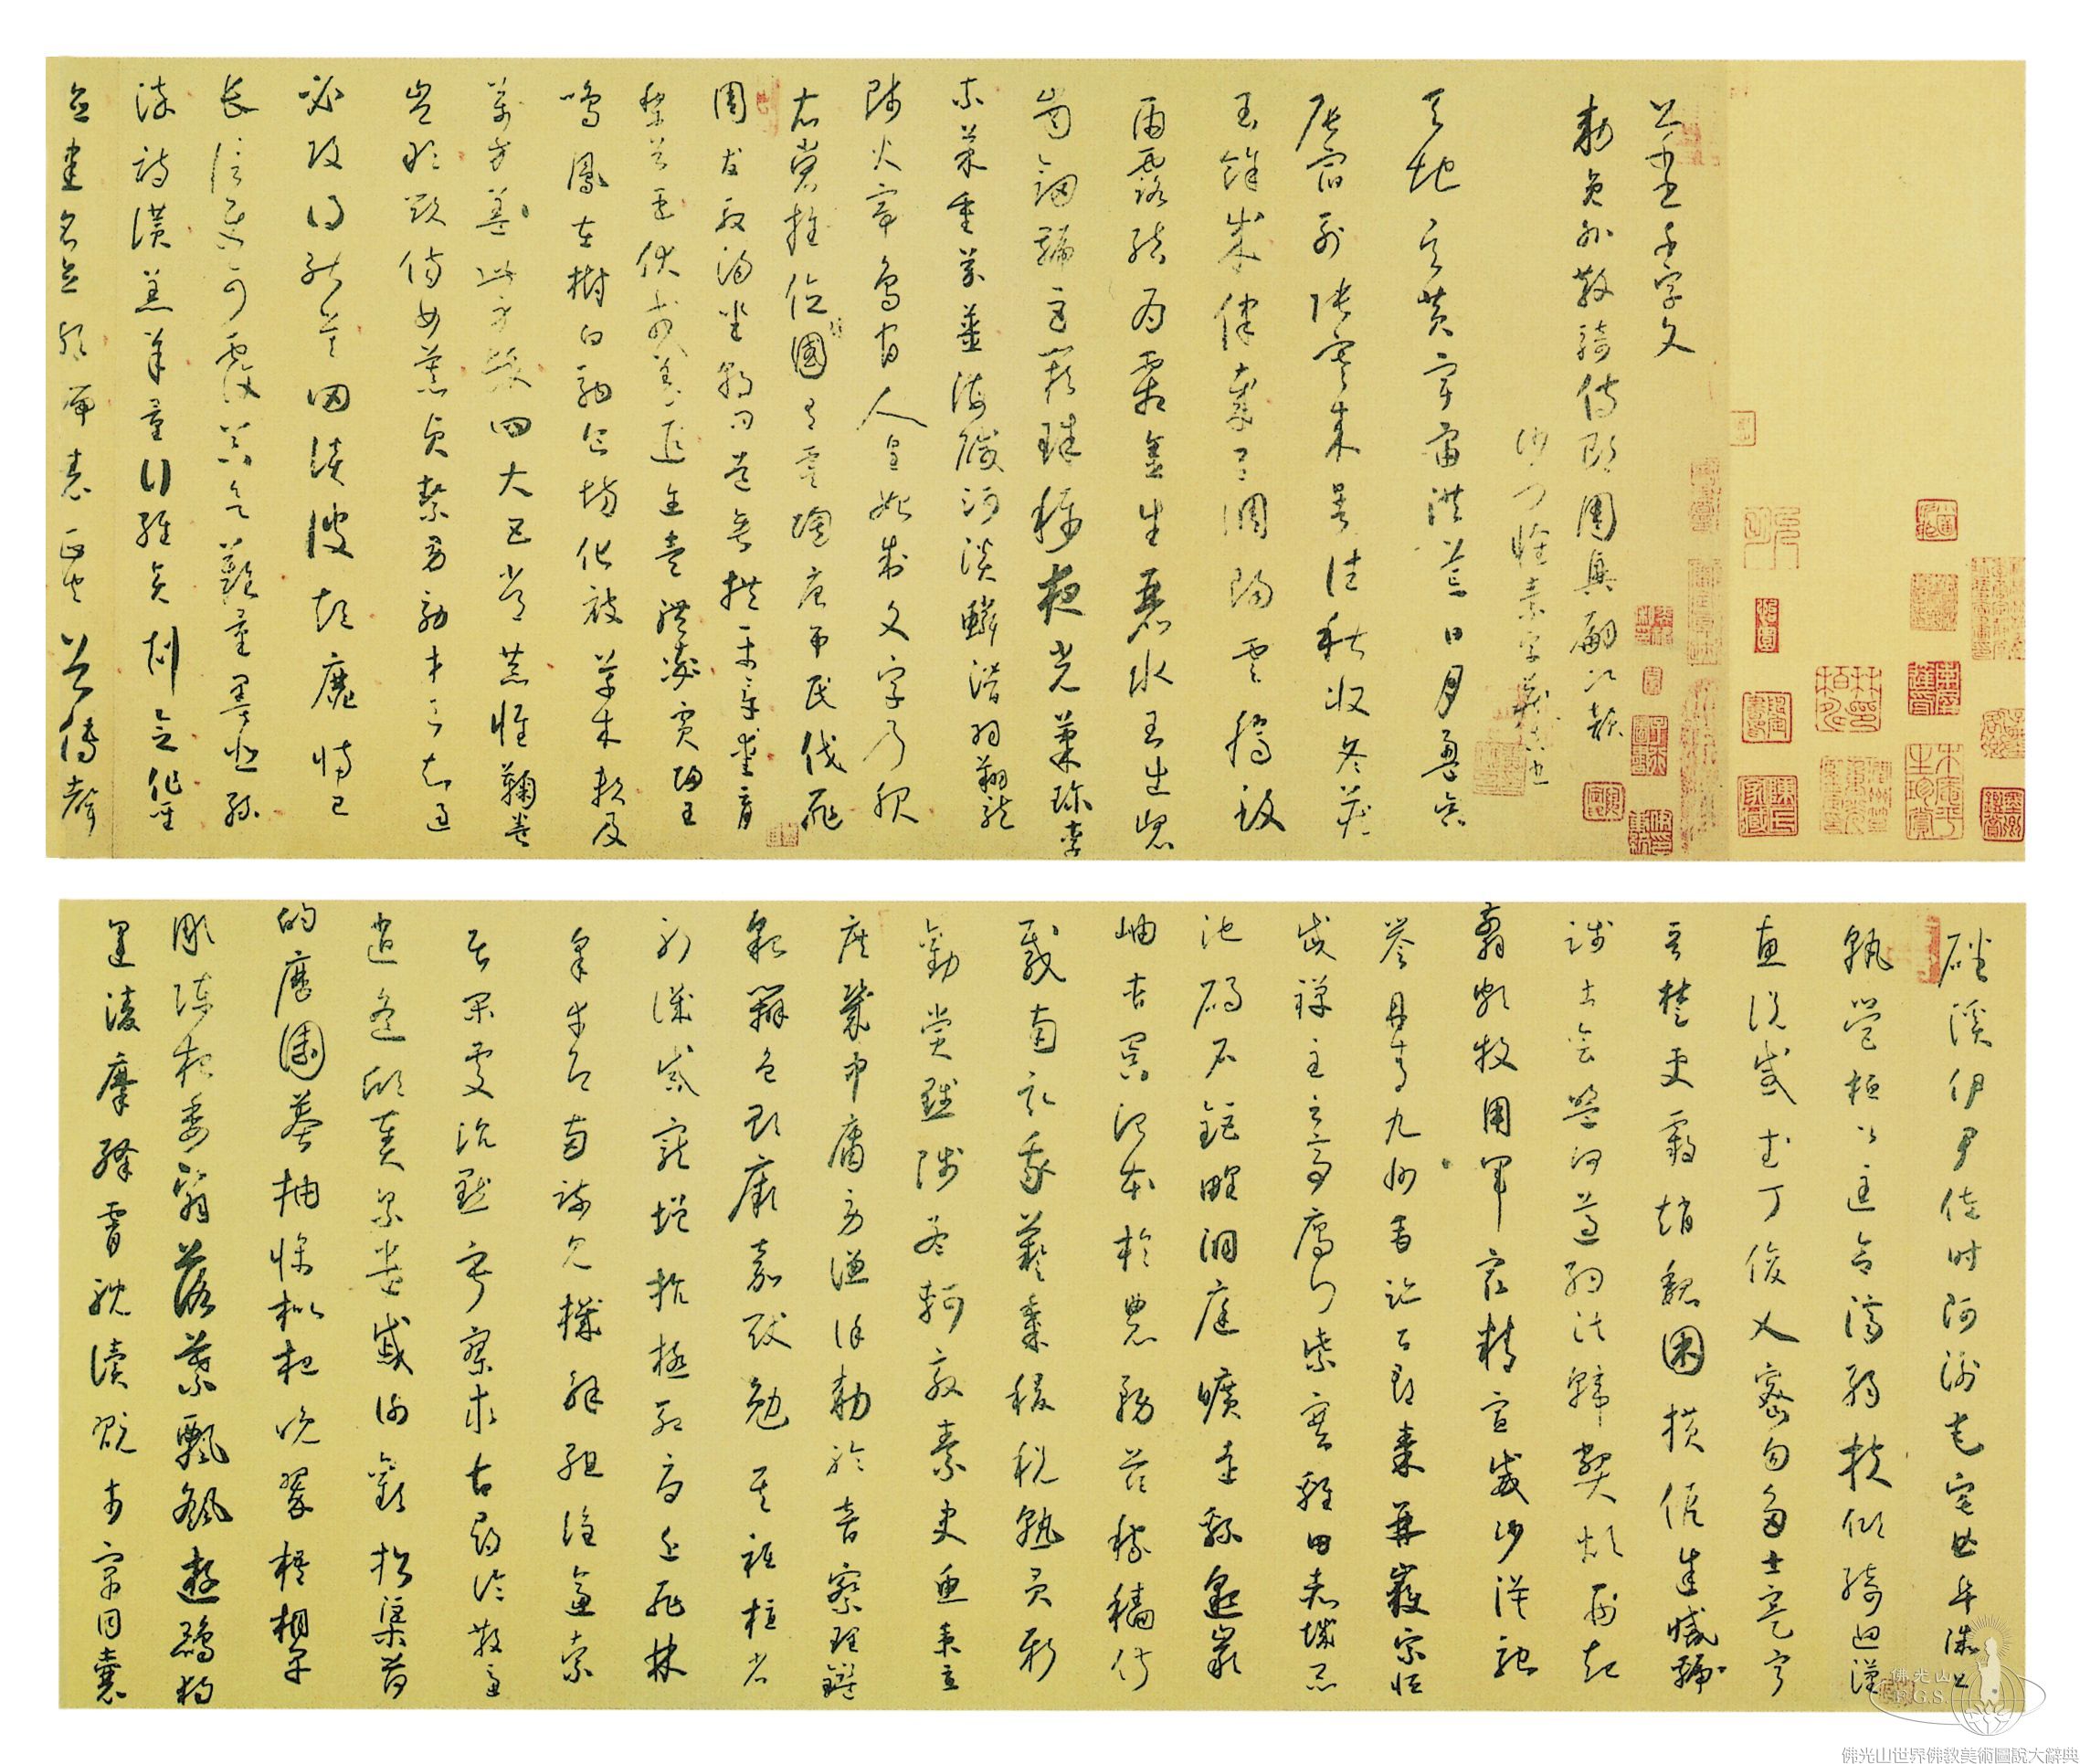 草書千字文
敕員外散騎侍郎周興嗣次韻
沙門懷素字藏真也
天地玄黃宇宙洪荒日月盈昃
辰宿列張寒來暑往秋收冬藏
閏餘成律歲呂調陽雲騰致
雨露結為霜金生麗水玉出崑
崗劍號巨闕珠稱夜光菓珍李
柰菜重芥薑海鹹河淡鱗潛羽翔龍
師火帝鳥官人皇始制文字乃服
衣裳推位讓國有虞陶唐弔民伐罪
周發殷湯坐朝問道垂拱平章愛育
黎首臣伏戎羌遐邇壹體率賓歸王
鳴鳳在樹白駒食場化被草木賴及
萬方蓋此身髮四大五常恭惟鞠養
豈敢毀傷女慕貞潔男效才良知過
必改得能莫忘罔談彼短靡恃己
長信使可覆器欲難量墨悲絲
染詩讚羔羊景行維賢剋念作聖
德建名立形端表正空谷傳聲
磻溪伊尹佐時阿衡奄宅曲阜微旦
孰營桓公匡合濟弱扶傾綺迴漢
惠說感武丁俊乂密勿多士寔寧
晉楚更霸趙魏困橫假途滅虢
踐土會盟何遵約法韓弊煩刑起
翦頗牧用軍最精宣威沙漠馳
譽丹青九州禹跡百郡秦并嶽宗恆
岱禪主云亭鴈門紫塞雞田赤城昆
池碣石鉅野洞庭曠遠綿邈巖
岫杳冥治本於農務茲稼穡俶
載南畝我藝黍稷稅熟貢新
勸賞黜陟孟軻敦素史魚秉直
庶幾中庸勞謙謹敕聆音察理鑑
貌辨色貽厥嘉猷勉其祗植省
躬譏誡寵增抗極殆辱近恥林
皋幸即兩疏見機解組誰逼索
居閑處沉默寂寥求古尋論散慮
逍遙欣奏累遣慼謝歡招渠荷
的歷園莽抽條枇杷晚翠梧桐早
彫陳根委翳落葉飄颻遊鵾獨
運凌摩絳霄耽讀翫市寓目囊
佛光山
F.G.S.
佛光山世界佛教美術圖說大辭典